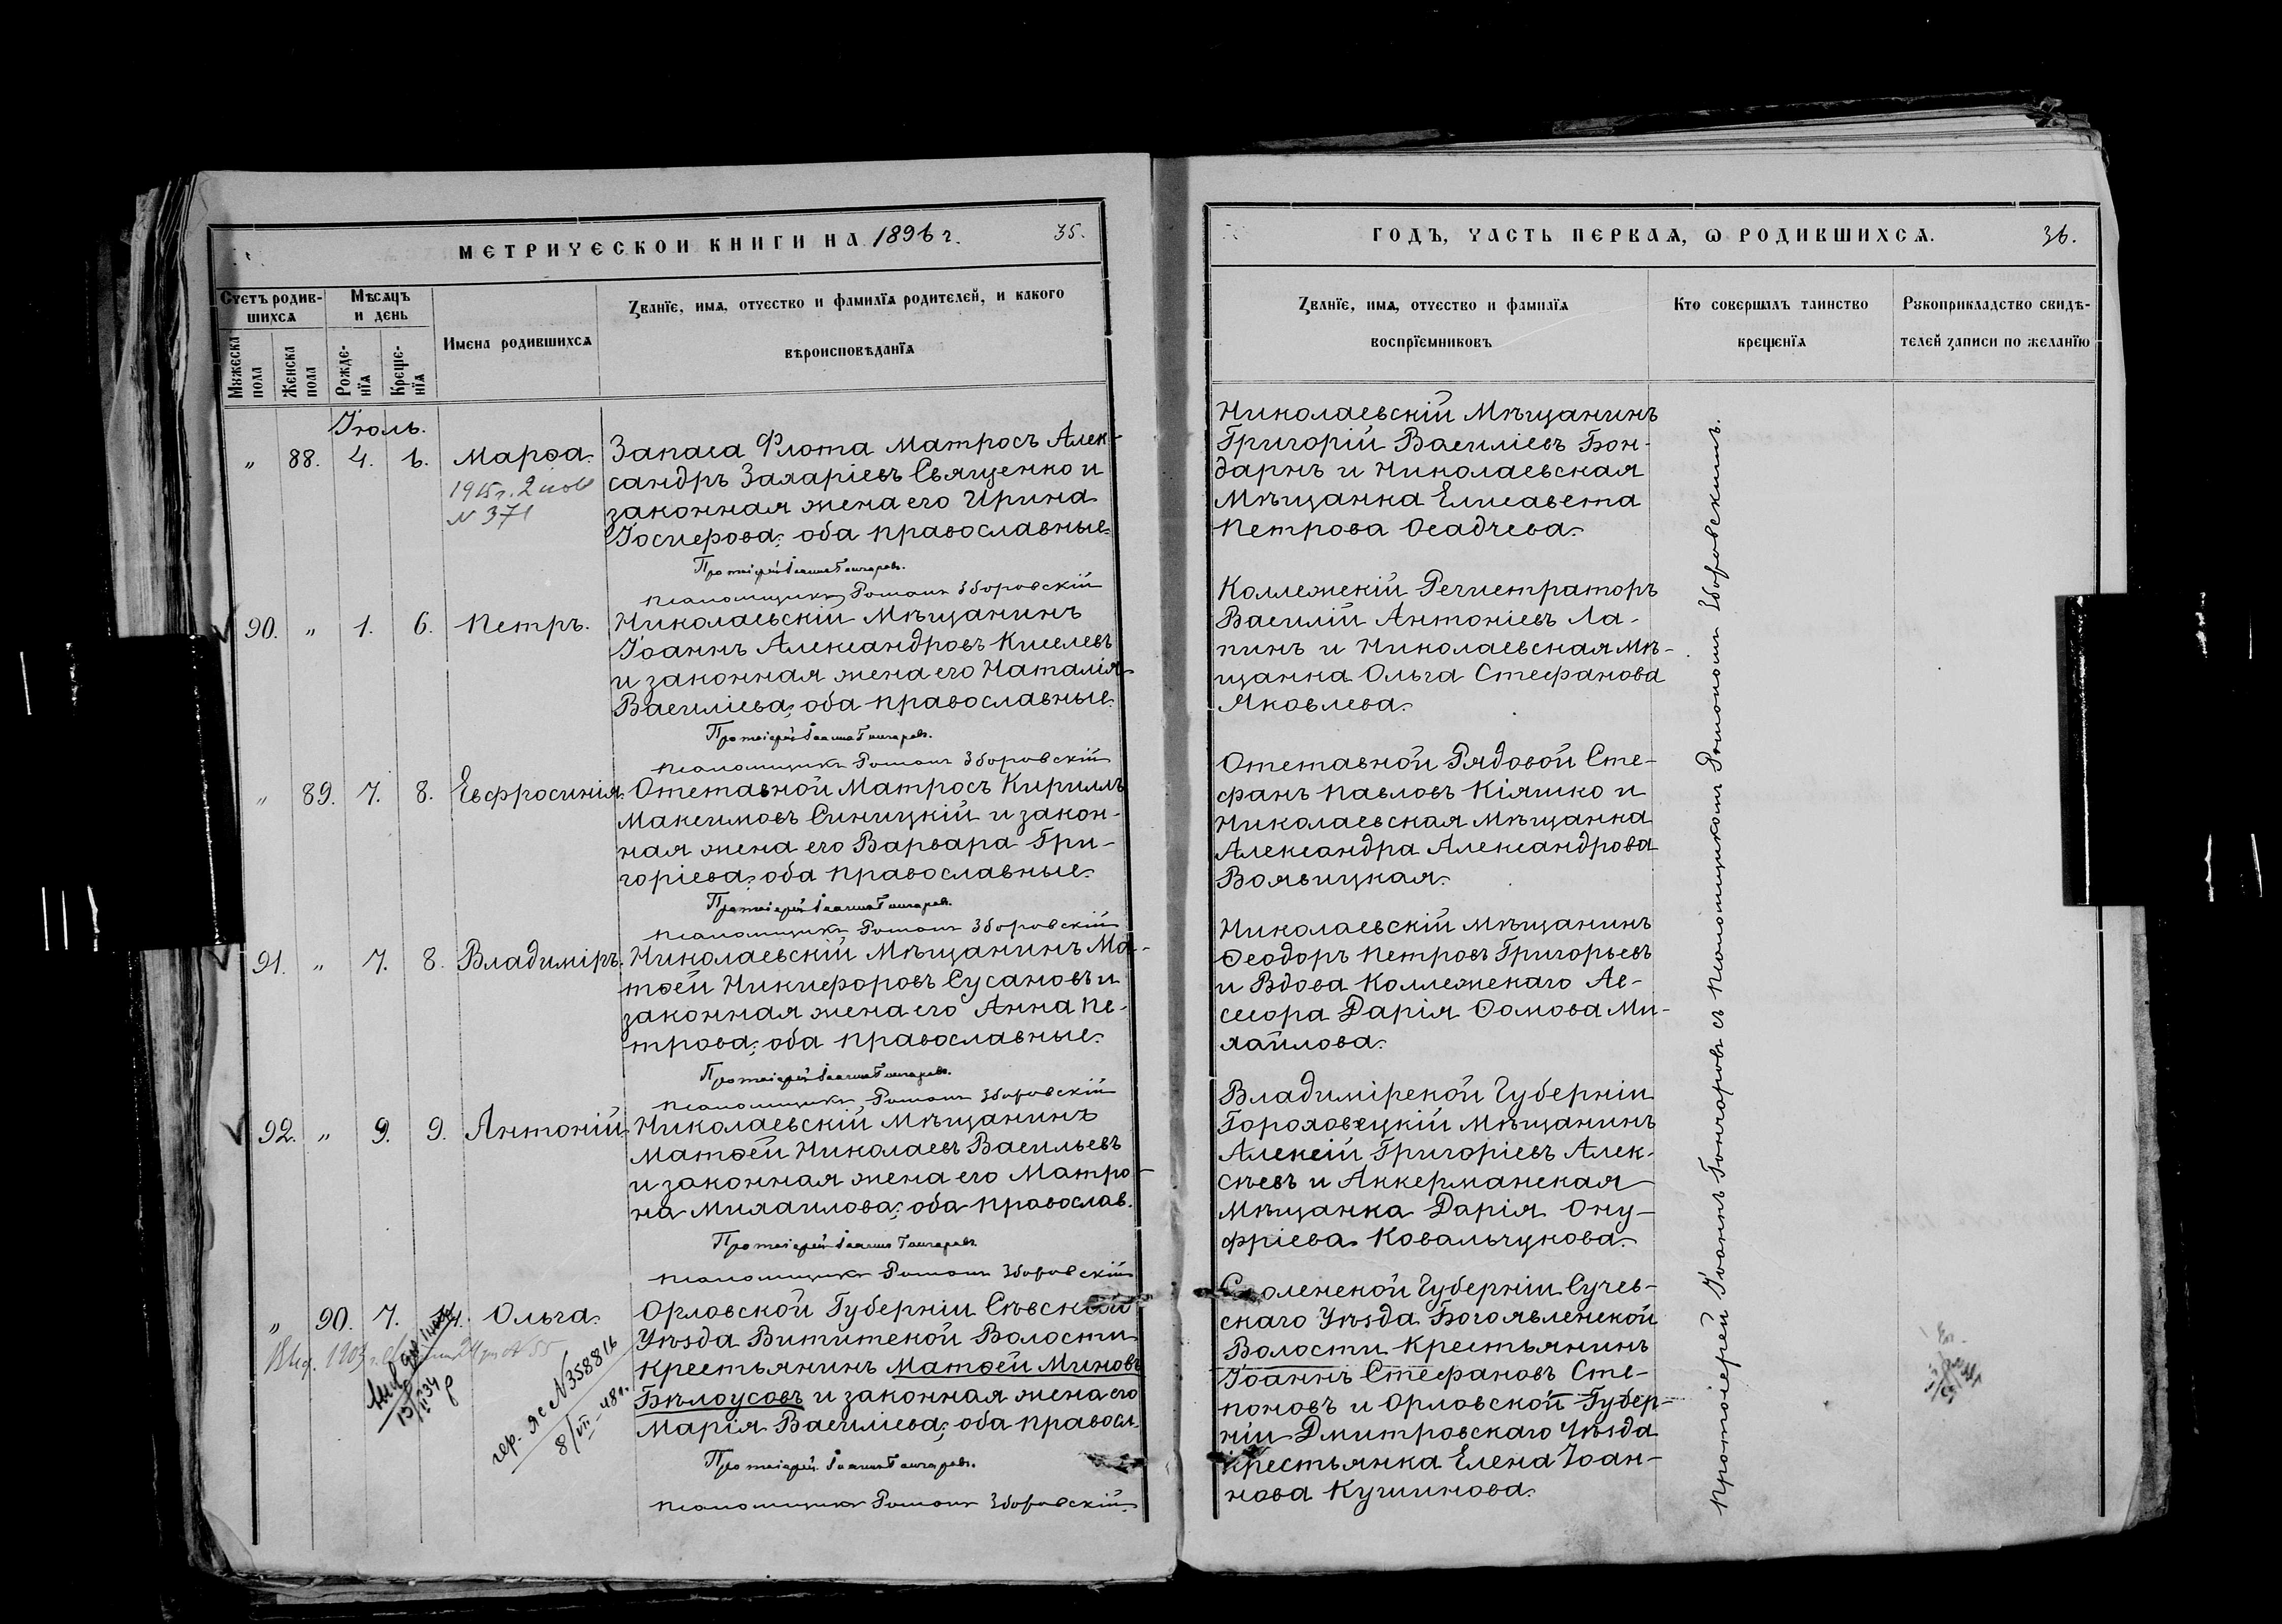 МЕТРИЧЕСКОЙ КНИГИ НА 1896 г.
35.
Счетъ родив-
шихся
Мѣсяцъ
и день
Имена родившихся
Званіе, имя, отчество и фамилія родителей, и какого
вѣроисповѣданія
Мужеска
пола
Женска
пола
Рожде-
нія
Креще-
нія
Іюль.
„ 88. 4. 6. Марѳа.
1915 г. 2
N 371
Запаса Флота Матросъ Алек-
сандръ Захаріевъ Священко и
законная жена его Ирина
Іосифова; оба православные.
Протоіерей Іоаннъ Гончаровъ.
Псаломщикъ Романъ Зборовскій
90. „ 1. 6. Петръ.
Николаевскій Мѣщанинъ
Іоаннъ Александровъ Киселевъ
и законная жена его Наталія
Василіева; оба православные.
Протоіерей Іоаннъ Гончаровъ.
Псаломщикъ Романъ Зборовскій
„ 89. 7. 8. Евфросинія.
Отставной Матросъ Кириллъ
Максимовъ Синицкій и закон-
ная жена его Варвара Гри-
горіева; оба православные.
Протоіерей Іоаннъ Гончаровъ.
Псаломщикъ Романъ Зборовскій
91. „ 7. 8. Владиміръ.
Николаевскій Мѣщанинъ Ма-
тѳей Никифоровъ Сусановъ и
законная жена его Анна Пе-
трова; оба православные.
Протоіерей Іоаннъ Гончаровъ.
Псаломщикъ Романъ Зборовскій
92. „ 9. 9. Антоній.
Николаевскій Мѣщанинъ
Матѳей Николаевъ Васильевъ
и законная жена его Матро-
на Михаилова; оба православ.
Протоіерей Іоаннъ Гончаровъ.
Псаломщикъ Романъ Зборовскій
„ 90. 7. Ольга.
Орловской Губерніи Сѣвской
Уѣзда Вититской Волости
крестьянинъ Матѳей Миновъ
Бѣлоусовъ и законная жена его
Марія Василиева; оба правосл.
Протоіерей Іоаннъ Гончаровъ.
Псаломщикъ Романъ Зборовскій
N 358816
8/VII–48 г.
ГОДЪ, ЧАСТЬ ПЕРВАЯ, Ѡ РОДИВШИХСЯ.
36.
Званіе, имя, отчество и фамилія
воспріемниковъ
Кто совершалъ таинство
крещенія
Рукоприкладство свидѣ-
телей записи по желанію
Николаевскій Мѣщанинъ
Григорій Василіевъ Бон-
дарнъ и Николаевская
Мѣщанка Елисавета
Петрова Осадчева.
Коллежскій Регистраторъ
Василій Антоніевъ Ла-
пинъ и Николаевская Мѣ-
щанка Ольга Стефанова
Яковлева.
Отставной Рядовой Сте-
фанъ Павловъ Кіяшко и
Николаевская Мѣщанка
Александра Александрова
Воявицкая.
Николаевскій Мѣщанинъ
Ѳеодоръ Петровъ Григорьевъ
и Вдова Коллежскаго Ас-
сесора Дарія Ѳомова Ми-
хайлова.
Владимірской Губерніи
Гороховецкій Мѣщанинъ
Алексій Григоріевъ Алек-
сѣевъ и Аккерманская
Мѣщанка Дарія Ону-
фріева Ковальчукова.
Смоленской Губерніи Сучев-
скаго Уѣзда Богоявленской
Волости Крестьянинъ
Іоаннъ Стефановъ Сте-
поновъ и Орловской Губер-
ніи Дмитровскаго Уѣзда
крестьянка Елена Іоан-
нова Кушинова.
Протоіерей Іоаннъ Гончаровъ съ Псаломщикомъ Романомъ Зборовскимъ.